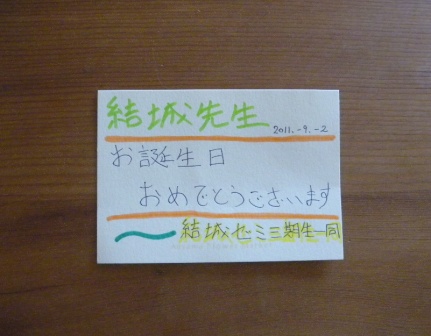 結城先生 2011.-9.-2
お誕生日
おめでとうございます
結城ゼミ三期生一同